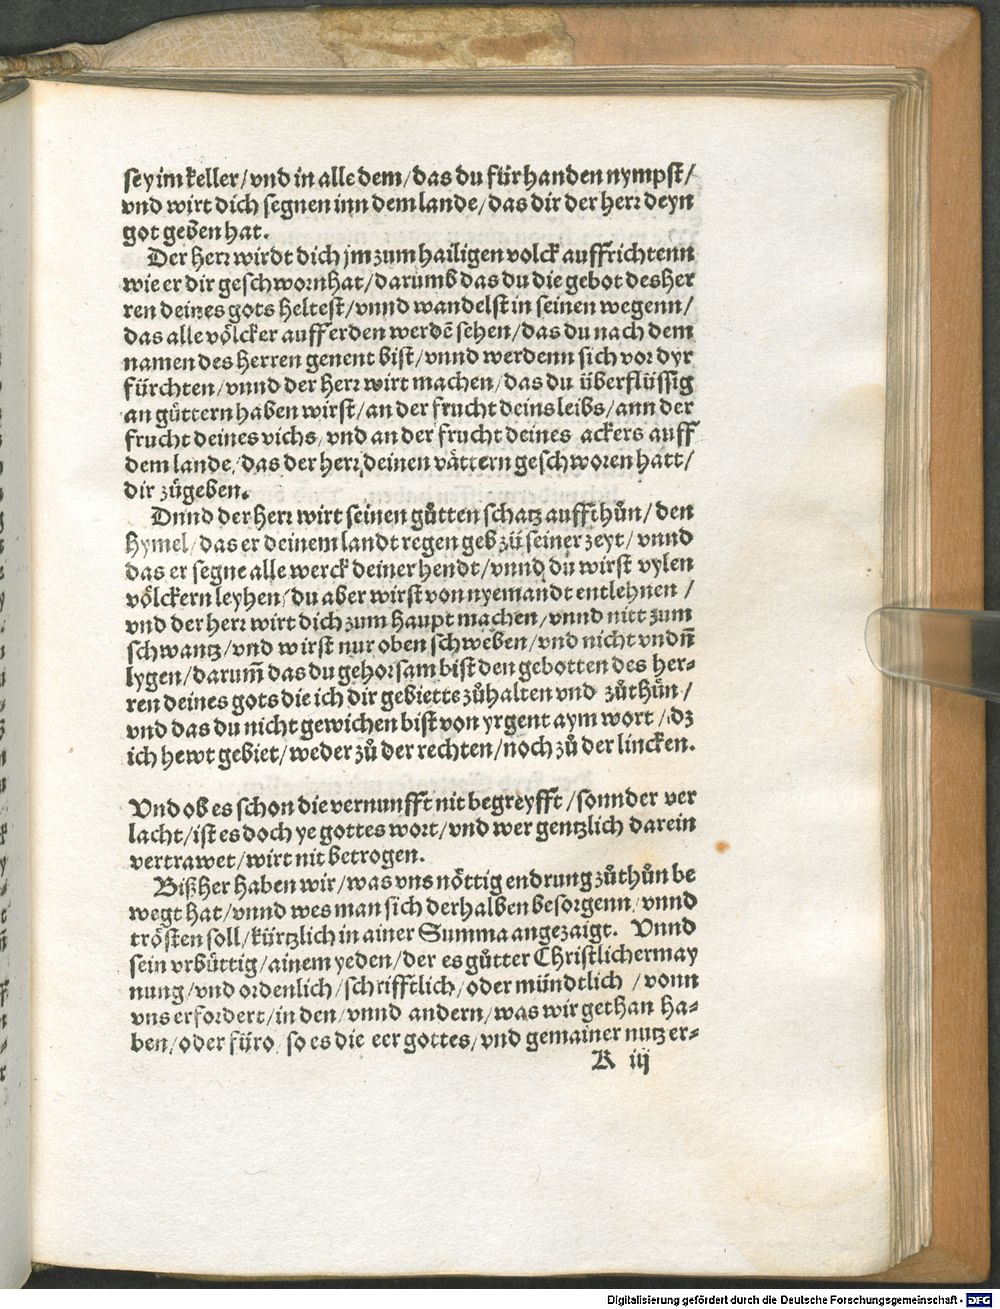 sey im keller/ vnd in alle dem/ das du für handen nympst/
vnd wirt dich segnen inn dem lande/ das dir der herr deyn
got geben hat.
Der herr wirdt dich jm zum hailigen volck auffrichtenn
wie er dir geschworn hat/ darumb das du die gebot des her
ren deines gots heltest/ vnnd wandelst in seinen wegenn/
das alle völcker auff erden werdē sehen/ das du nach dem
namen des herren genent bist/ vnnd werdenn sich vor dyr
fürchten/ vnnd der herr wirt machen/ das du überflüssig
an güttern haben wirst/ an der frucht deins leibs/ ann der
frucht deines vichs/ vnd an der frucht deines ackers auff
dem lande/ das der herr deinen vättern geschworen hatt/
dir zügeben.
Vnnd der herr wirt seinen gůtten schatz auffthůn/ den
hymel/ das er deinem landt regen geb zů seiner zeyt/ vnnd
das er segne alle werck deiner hendt/ vnnd du wirst vylen
völckern leyhen/ du aber wirst von nyemandt entlehnen/
vnd der herr wirt dich zum haupt machen/ vnnd nitt zum
schwantz/ vnd wirst nur oben schweben/ vnd nicht vndn̄
lygen/ darum̄ das du gehorsam bist den gebotten des her-
ren deines gots die ich dir gebiette zůhalten vnd zůthůn/
vnd das du nicht gewichen bist von yrgent aym wort/ dz
ich hewt gebiet/ weder zů der rechten/ noch zů der lincken.
Vnd ob es schon die vernunfft nit begreyfft/ sonnder ver
lacht/ ist es doch ye gottes wort/ vnd wer gentzlich darein
vertrawet/ wirt nit betrogen.
Bißher haben wir/ was vns nöttig endrung zůthůn be
wegt hat/ vnnd wes man sich derhalben besorgenn/ vnnd
trösten soll/ kürtzlich in ainer Summa angezaigt. Vnnd
sein vrbüttig/ ainem yeden/ der es gůtter Christlicher may
nung/ vnd ordenlich/ schrifftlich/ oder mündtlich/ vonn
vns erfordert/ in den/ vnnd andern/ was wir gethan ha-
ben/ oder füro/ so es die eer gottes/ vnd gemainer nutz er-
K iij
Digitalisierung gefördert durch die Deutsche Forschungsgemeinschaft - DFG